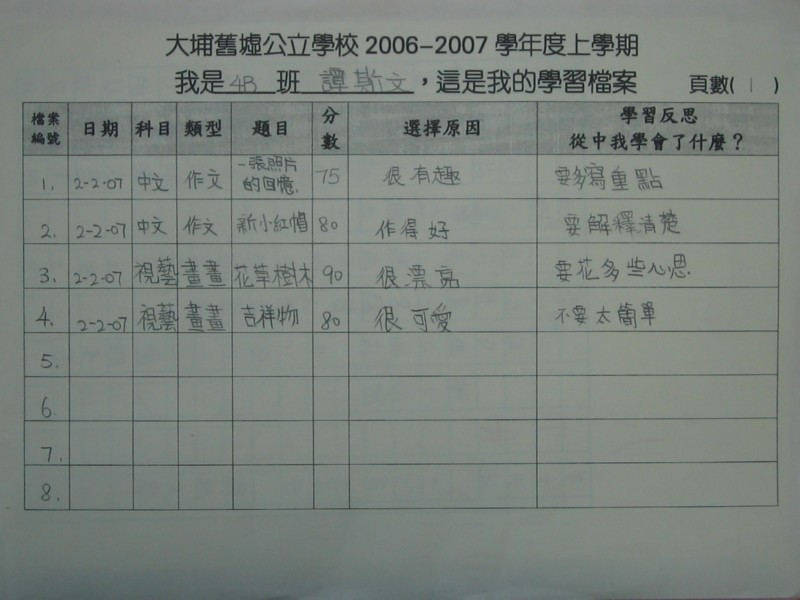 大埔舊墟公立學校 2006-2007 學年度上學期
我是 4B 班 譚斯文，這是我的學習檔案 頁數( 1 )
檔案編號 日期 科目 類型 題目 分數 選擇原因 學習反思 從中我學會了什麼？
1. 2-2-07 中文 作文 一張照片的回憶. 75 很有趣 要多寫重點
2. 2-2-07 中文 作文 新小紅帽 80 作得好 要解釋清楚
3. 2-2-07 視藝 畫畫 花草樹林 90 很漂亮 要花多些心思
4. 2-2-07 視藝 畫畫 吉祥物 80 很可愛 不要太簡單
5.
6.
7.
8.